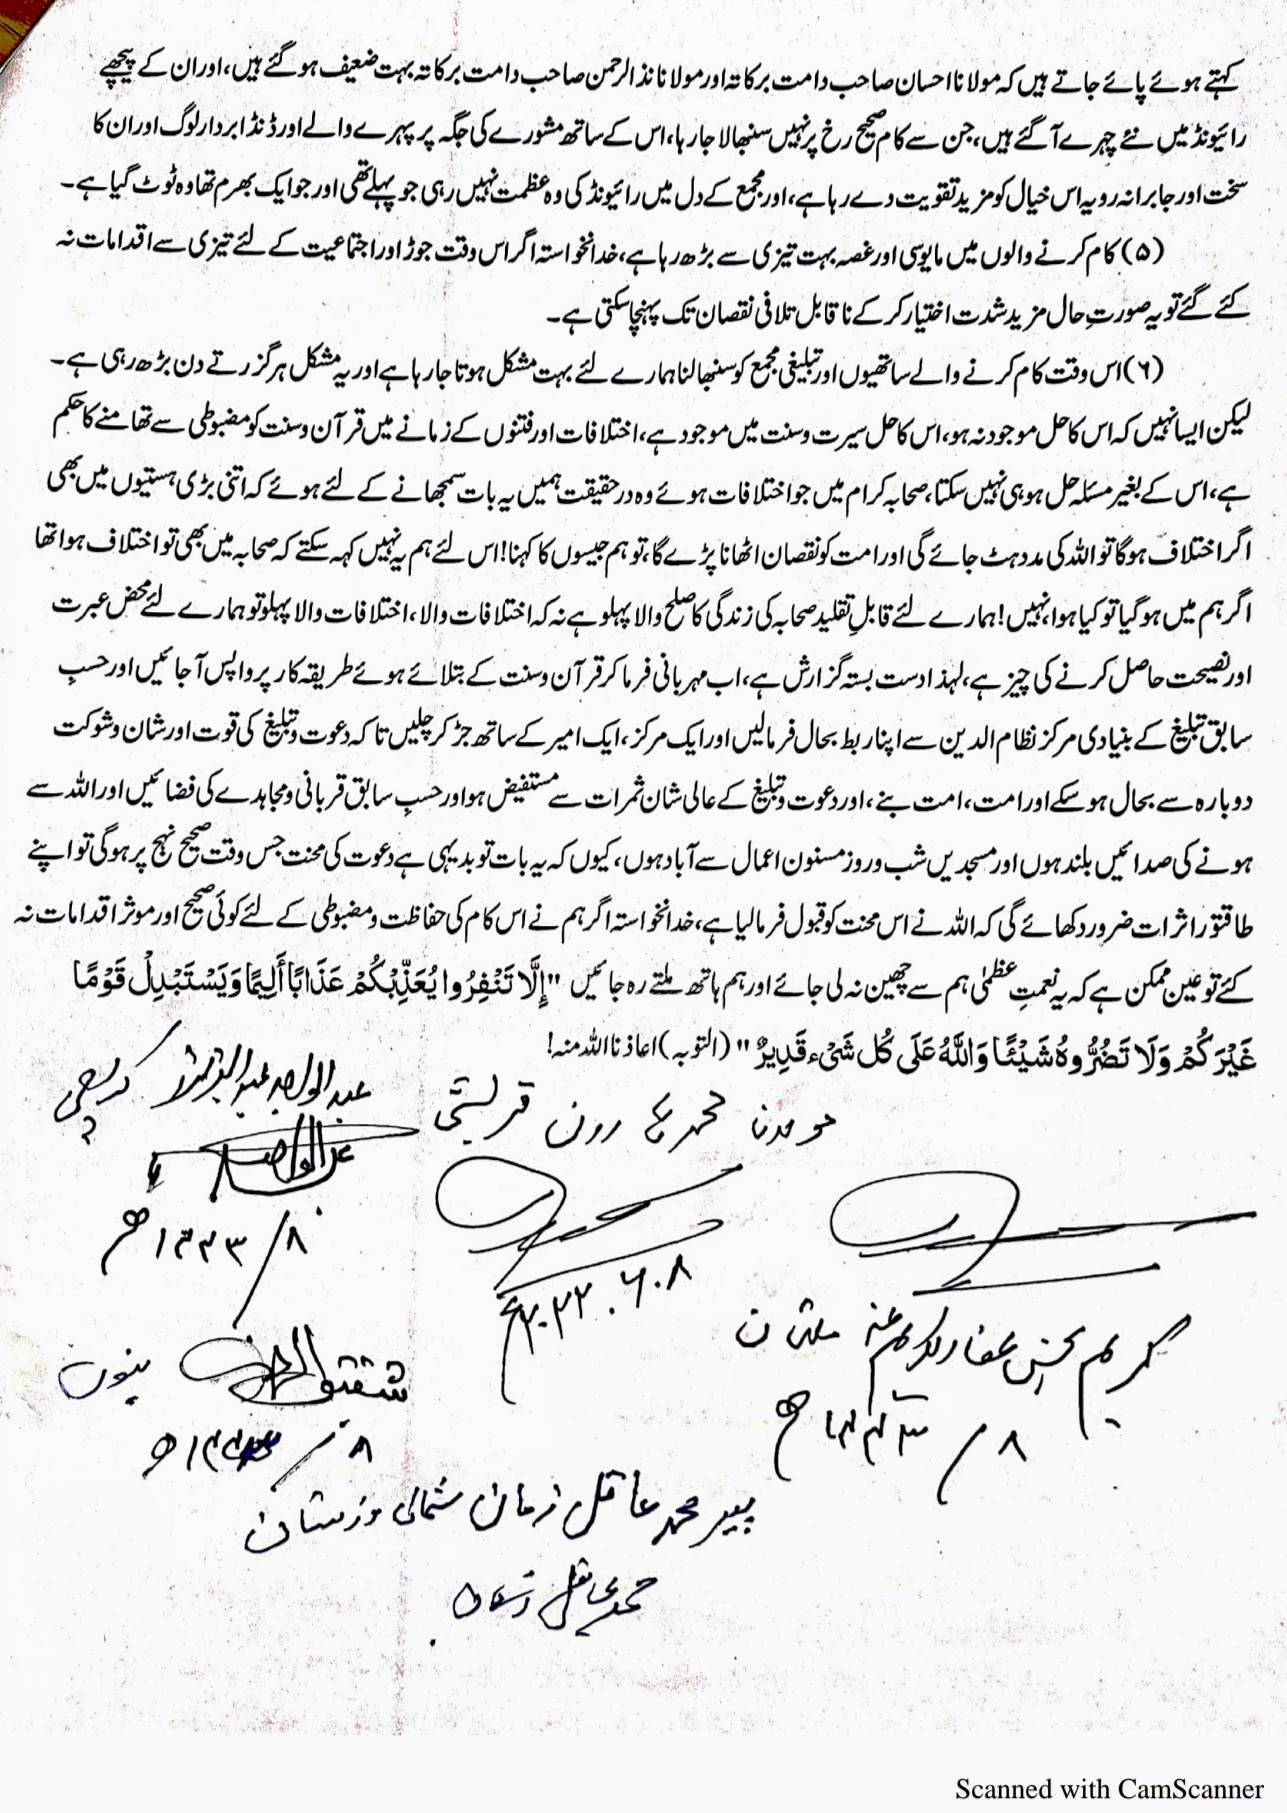 کہتے ہوئے پائے جاتے ہیں کہ مولانا احسان صاحب دامت برکاتہ اور مولانا نذالرحمن صاحب دامت برکاتہ بہت ضعیف ہوگئے ہیں، اور ان کے پیچھے
رائیونڈ میں نئے چہرے آگئے ہیں، جن سے کام صحیح رخ پر نہیں سنبھالا جارہا، اس کے ساتھ مشورے کی جگہ پر پہرے والے اور ڈنڈا بردار لوگ اور ان کا
سخت اور جابرانہ رویہ اس خیال کو مزید تقویت دے رہا ہے، اور مجمع کے دل میں رائیونڈ کی وہ عظمت نہیں رہی جو پہلے تھی اور جو ایک بھرم تھا وہ ٹوٹ گیا ہے۔
(۵) کام کرنے والوں میں مایوسی اور غصہ بہت تیزی سے بڑھ رہا ہے، خدانخواستہ اگر اس وقت جوڑ اور اجتماعیت کے لئے تیزی سے اقدامات نہ
کئے گئے تو یہ صورتِ حال مزید شدت اختیار کرکے ناقابل تلافی نقصان تک پہنچا سکتی ہے۔
(۶) اس وقت کام کرنے والے ساتھیوں اور تبلیغی مجمع کو سنبھالنا ہمارے لئے بہت مشکل ہوتا جارہا ہے اور یہ مشکل ہر گزرتے دن بڑھ رہی ہے۔
لیکن ایسا نہیں کہ اس کا حل موجود نہ ہو، اس کا حل سیرت وسنت میں موجود ہے، اختلافات اور فتنوں کے زمانے میں قرآن وسنت کو مضبوطی سے تھامنے کا حکم
ہے، اس کے بغیر مسئلہ حل ہو ہی نہیں سکتا، صحابہ کرام میں جو اختلافات ہوئے وہ درحقیقت ہمیں یہ بات سمجھانے کے لئے ہوئے کہ اتنی بڑی ہستیوں میں بھی
اگر اختلاف ہوگا تو اللہ کی مدد ہٹ جائے گی اور امت کو نقصان اٹھانا پڑے گا، تو ہم جیسوں کا کہنا! اس لئے ہم یہ نہیں کہہ سکتے کہ صحابہ میں بھی تو اختلاف ہوا تھا
اگر ہم میں ہوگیا تو کیا ہوا، نہیں! ہمارے لئے قابلِ تقلید صحابہ کی زندگی کا صلح والا پہلو ہے نہ کہ اختلافات والا، اختلافات والا پہلو تو ہمارے لئے محض عبرت
اور نصیحت حاصل کرنے کی چیز ہے، لہذا دست بستہ گزارش ہے، اب مہربانی فرما کر قرآن وسنت کے بتلائے ہوئے طریقہ کار پر واپس آجائیں اور حسبِ
سابق تبلیغ کے بنیادی مرکز نظام الدین سے اپنا ربط بحال فرمالیں اور ایک مرکز، ایک امیر کے ساتھ جڑ کر چلیں تاکہ دعوت وتبلیغ کی قوت اور شان وشوکت
دوبارہ سے بحال ہوسکے اور امت، امت بنے، اور دعوت وتبلیغ کے عالی شان ثمرات سے مستفیض ہو اور حسبِ سابق قربانی ومجاہدے کی فضائیں اور اللہ سے
ہونے کی صدائیں بلند ہوں اور مسجدیں شب وروز مسنون اعمال سے آباد ہوں، کیوں کہ یہ بات تو بدیہی ہے دعوت کی محنت جس وقت صحیح نہج پر ہوگی تو اپنے
طاقتور اثرات ضرور دکھائے گی کہ اللہ نے اس محنت کو قبول فرمالیا ہے، خدانخواستہ اگر ہم نے اس کام کی حفاظت ومضبوطی کے لئے کوئی صحیح اور موثر اقدامات نہ
کئے تو عین ممکن ہے کہ یہ نعمتِ عظمٰی ہم سے چھین نہ لی جائے اور ہم ہاتھ ملتے رہ جائیں "إِلَّا تَنْفِرُوا يُعَذِّبْكُمْ عَذَابًا أَلِيمًا وَيَسْتَبْدِلْ قَوْمًا
غَيْرَكُمْ وَلَا تَضُرُّوهُ شَيْئًا وَاللَّهُ عَلَى كُل شَيْء قَدِيرٌ" (التوبہ) اعاذنا اللہ منہ!
عبدالواحد کراچی
محمد ہارون قریشی
عبدالواحد
۸/ ۱۴۴۳ھ
۲۰۲۲.۶.۸ء
کریم بخش ملتان
۸/ ۱۴۴۳ھ
شفیق الرحمن بنوں
۸/ ۱۴۴۳ھ
پیر محمد عاقل زمان شمالی وزستان
محمد عاقل زمان
Scanned with CamScanner